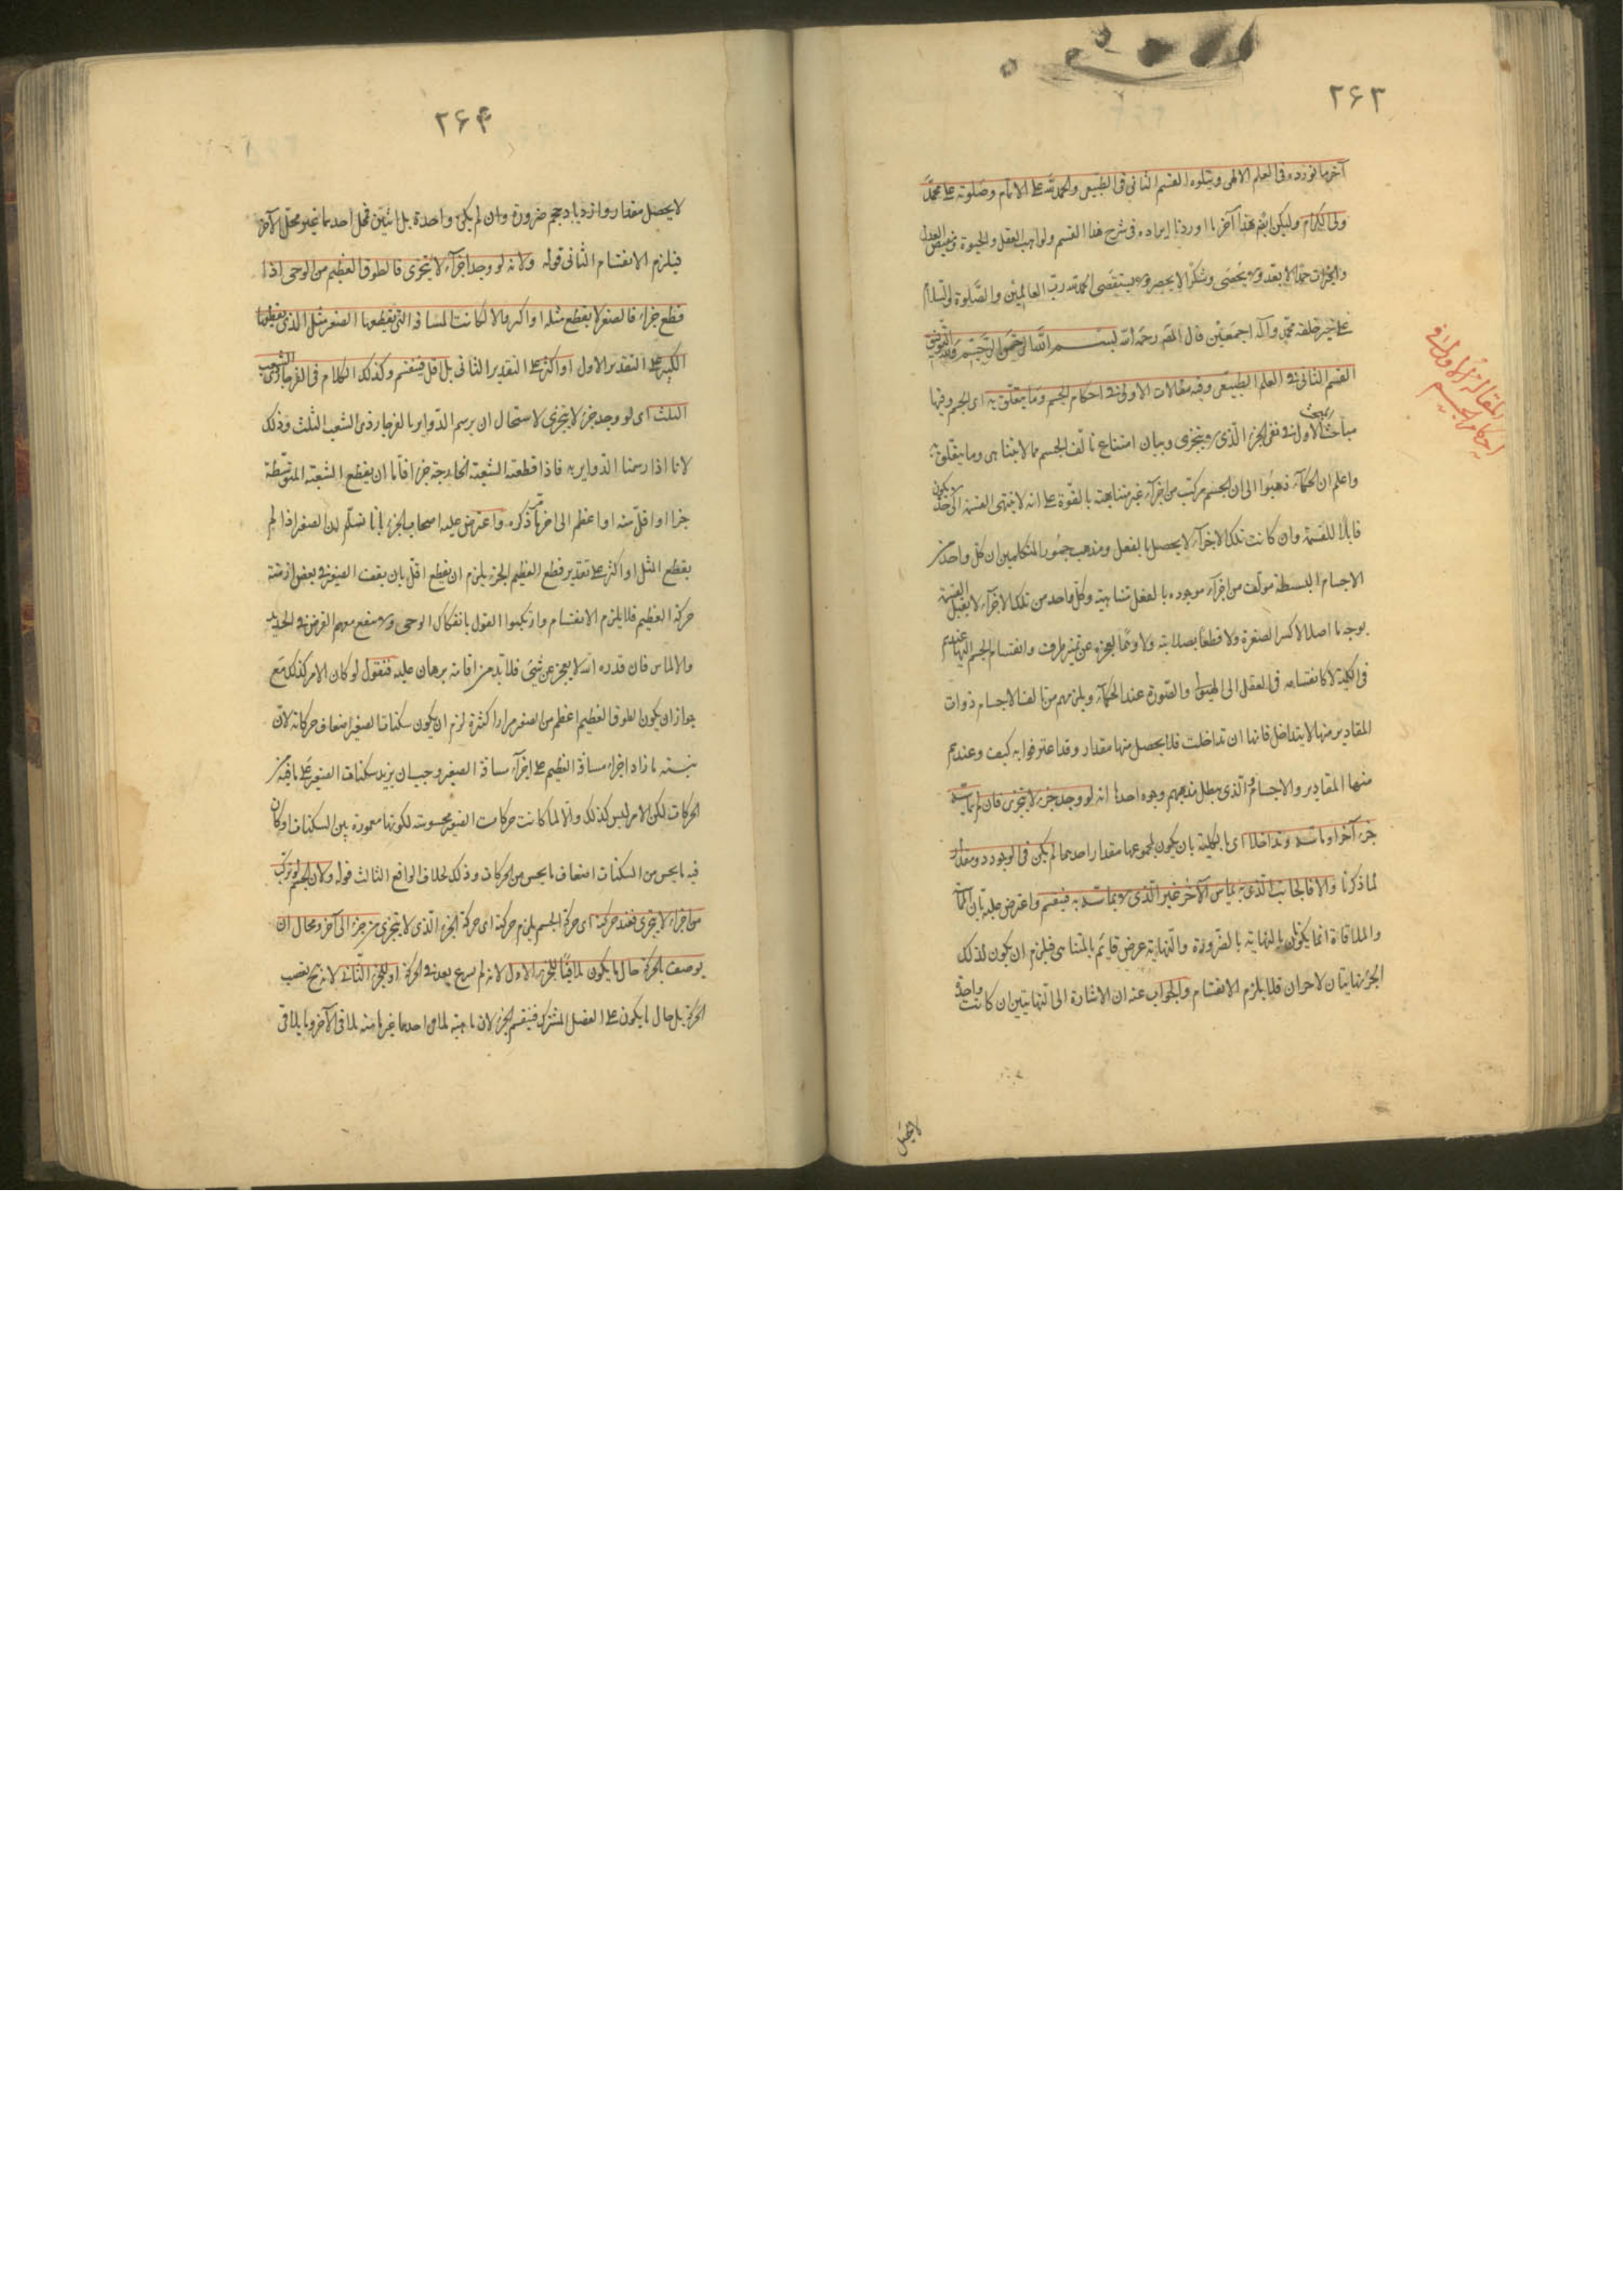 ٢۶٣
آخر ما نورده فى العلم الالهى ويتلوه القسم الثانى فى الطبيعى والحمد لله على الاتمام وصلوته على محمد
ولى الكرام وليكن ايضا هذا آخر ما اوردنا ايراده فى شرح هذا القسم ولواهب العقل والحيوة ومفيض العدل
والخيرات حمدا لا يعد ولا يحصى وشكرا لا يحصر ولا يستقصى الحمد لله رب العالمين والصلوة والسلام
على خير خلقه محمد وآله اجمعين قال المص رحمه الله بسم الله الرحمن الرحيم وبه التوفيق
القسم الثانى فى العلم الطبيعى وفيه مقالات الاولى فى احكام الجسم وما يتعلق به اى الجسم وفيها
مباحث المبحث الاول فى نفى الجزء الذى لا يتجزى وبيان امتناع تألف الجسم مما لا يتناهى وما يتعلق به
واعلم ان الحكماء ذهبوا الى ان الجسم مركب من اجزاء غير متناهية بالقوة على انه لا ينتهى القسمة الى حد لا يكون
قابلا للقسمة وان كانت تلك الاجزاء لا يحصل بالفعل ومذهب جمهور المتكلمين ان كل واحد من
الاجسام البسيطة مؤلف من اجزاء موجوده بالفعل متناهية وكل واحد من تلك الاجزاء لا يقبل القسمة
بوجه ما اصلا لا كسرا لصغره ولا قطعا لصلابته ولا وهما لعجزه عن تميز طرف وانقسام الجسم اليها عندهم
فى الكلية لا كانقسامه فى العقل الى الهيولى والصورة عند الحكماء ويلزمهم من تالف الاجسام ذوات
المقادير منها لا يتداخل فانها ان تداخلت فلا يحصل منها مقدار وقد اعترفوا به كيف وعندهم
منها المقادير والاجسام والذى يبطل مذهبهم وجوه احدها انه لو وجد جزء لا يتجزى فان لم يماسه
جزء آخر او ماسه وتداخلا اى بالكلية بان يكون لمجموعهما مقدار احدهما لم يكن فى الوجود ذو مقدار
لما ذكرنا والا فالجانب الذى به يماس الآخر غير الذى لا يماسه به فينقسم واعترض عليه بان المماسة
والملاقاة انما يكونان بالنهاية بالضرورة والنهاية عرض قايم بالمتناهى فيلزم ان يكون لذلك
الجزء نهايتان لا جزآن فلا يلزم الانقسام والجواب عنه ان الاشارة الى النهايتين ان كانت واحدة
لا يحصل
المقالة الاولى فى
احكام الجسم
٢۶۴
لا يحصل مقدار وازدياد حجم ضرورة وان لم يكن واحدة بل اثنين فمحل احدهما غير محل الآخر
فيلزم الانقسام الثانى قوله ولانه لو وجد اجزاء لا يتجزى فالطوق العظيم من الرحى اذا
قطع جزءا فالصغير لا يقطع مثله او اكبر والا لكانت المسافة التى يقطعها الصغير مثل الذى يقطعها
الكبير على التقدير الاول او اكثر على التقدير الثانى بل اقل فينقسم وكذلك الكلام فى الفرجار ذى الشعب
الثلث اى لو وجد جزء لا يتجزى لاستحال ان يرسم الدواير بالفرجار ذى الشعب الثلث وذلك
لانا اذا رسمنا الدواير به فاذا قطعت الشعبة الخارجة جزءا فاما ان يقطع الشعبة المتوسطة
جزءا او اقل منه او اعظم الى آخر ما مر ذكره واعترض عليه اصحاب الجزء بانا لا نسلم ان الصغير اذا لم
يقطع المثل او اكثر على تقدير قطع العظيم الجزء يلزم ان يقطع اقل بان يقف الصغير فى بعض ازمنة
حركة العظيم فلا يلزم الانقسام وارتكبوا القول بانفكاك الرحى ولا ينفع معهم الفرض فى الحديد
والالماس فان قدرة الله لا يعجز عن شئ فلا بد من اقامة برهان عليه فنقول لو كان الامر كذلك مع
جواز ان يكون الطوق العظيم اعظم من الصغير مرارا كثيرة لزم ان يكون سكنات الصغير اضعاف حركاته لان
نسبته ما زاد اجزاء مسافة العظيم على اجزاء مسافة الصغير وجب ان يزيد سكنات الصغير على ما فيه من
الحركات لكن الامر ليس كذلك والا لما كانت حركات الصغير محسوسة لكونها مغمورة بين السكنات او كان
فيه ما يحس من السكنات اضعاف ما يحس من الحركات وذلك خلاف الواقع الثالث قوله ولان الجسم لو تركب
من اجزاء لا يتجزى فعند حركته اى حركة الجسم يلزم حركته اى حركة الجزء الذى لا يتجزى من جزء الى آخر ومحال ان
يوصف بالحركة حال ما يكون ملاقيا للجزء الاول لانه لم يسرع بعد فى الحركة او للجزء الثانى لانه ح يقضت
الحركة بل حال ما يكون على الفصل المشترك فينقسم الجزء لان ما منه لملاقى احدهما غير ما منه لملاقى الآخر وما يلاقى